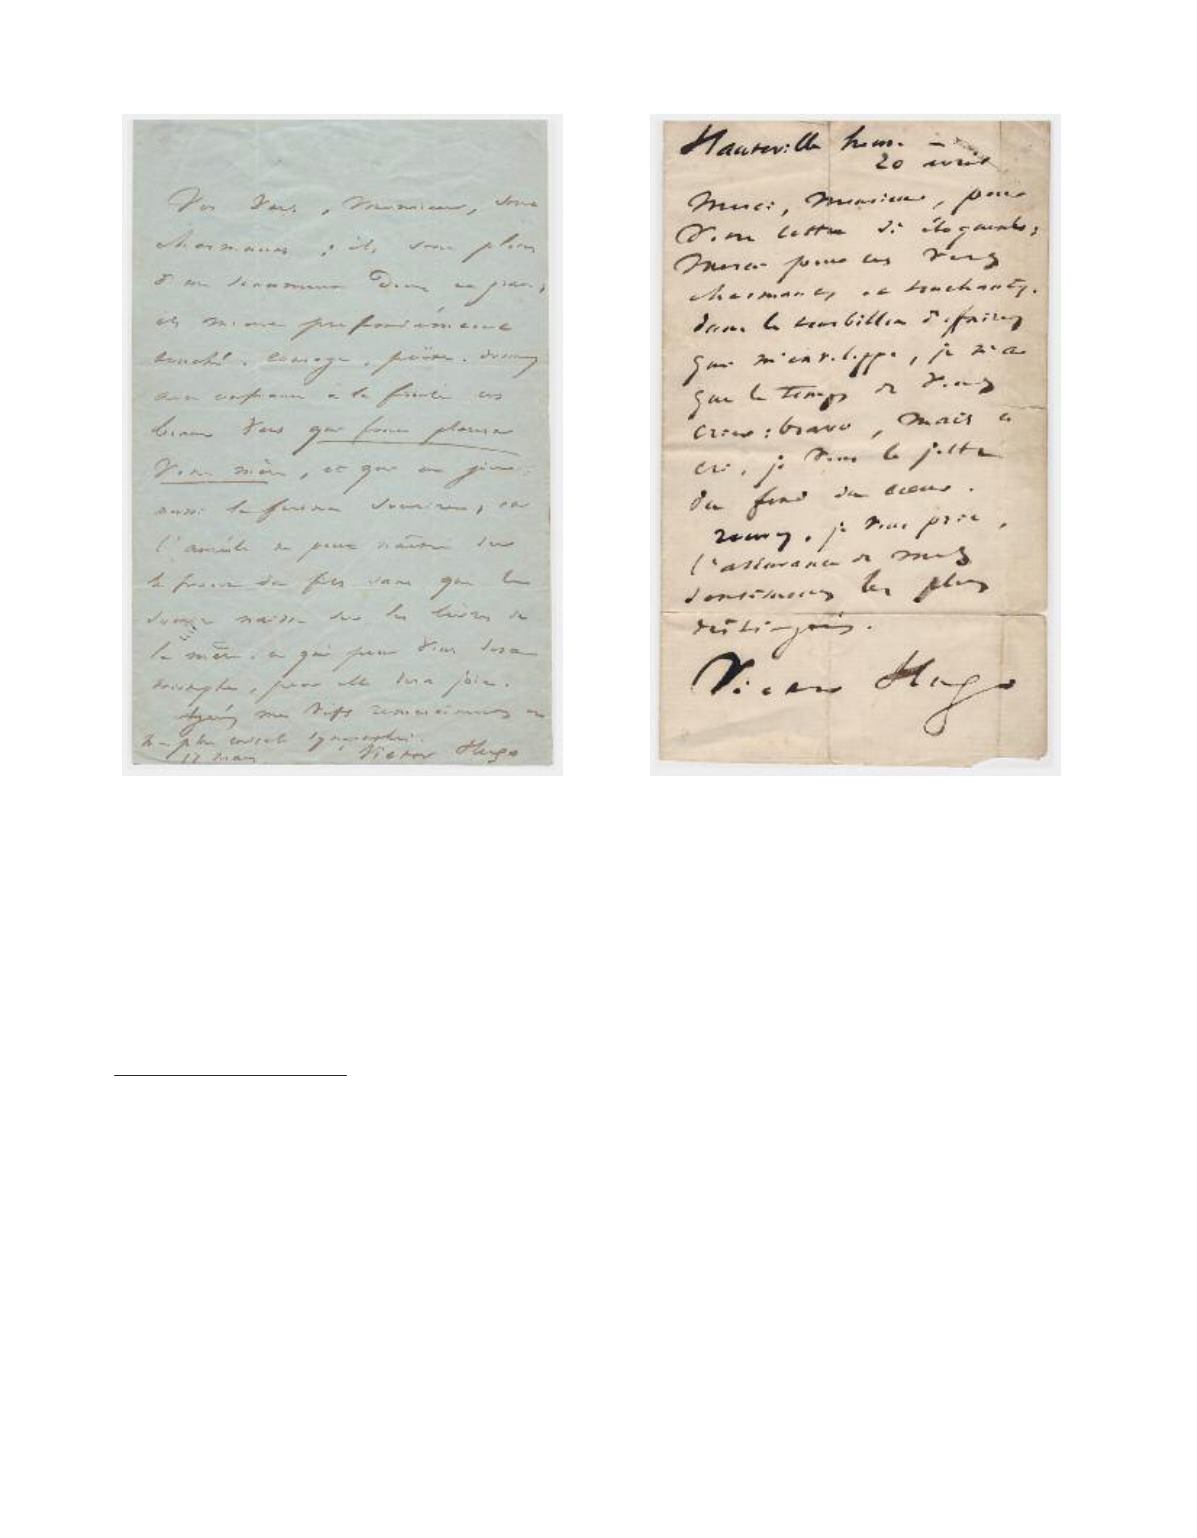 Vos vers, Monsieur, sont
charmants ; ils sont pleins
d'un sentiment doux et grave,
ils m'ont profondément
touché. Courage, poëte. donnez
avec confiance à la foule ces
beaux vers qui font pleurer
votre mère, et qui un jour
aussi la feront sourire, car
l'auréole ne peut naître sur
le front du fils sans que le
sourire naisse sur les lèvres de
la mère. ce qui pour vous sera
triomphe, pour elle sera joie.
Agréez mes vifs remerciements et
ma plus cordiale sympathie.
17 mars Victor Hugo
Hauteville house –
20 avril
Merci, Monsieur, pour
votre lettre si éloquente ;
Merci pour ces vers
charmants et touchants.
dans le tourbillon d'affaires
qui m'enveloppe, je n'ai
que le temps de vous
crier : bravo, mais ce
cri, je vous le jette
du fond du cœur.
recevez, je vous prie,
l'assurance de mes
sentiments les plus
distingués.
Victor Hugo